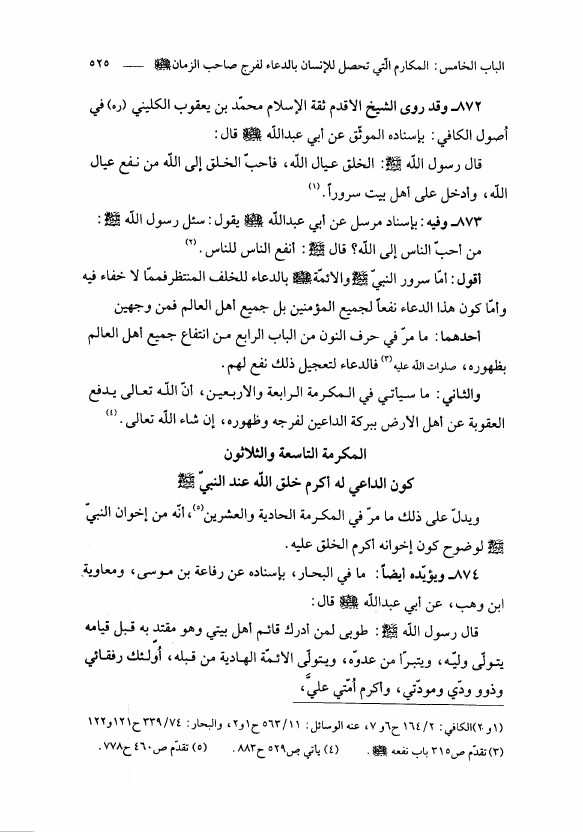 الباب الخامس: المكارم الّتي تحصل للإنسان بالدعاء لفرج صاحب الزمان ﷺ ـــــ ٥٢٥
٨٧٢ـ وقد روى الشيخ الاقدم ثقة الإسلام محمّد بن يعقوب الكليني (ره) في
أصول الكافي: بإسناده الموثّق عن أبي عبدالله ﷺ قال:
قال رسول الله ﷺ: الخلق عيال الله، فاحبّ الخلق إلى الله من نفع عيال
الله، وأدخل على أهل بيت سروراً.(١)
٨٧٣ـ وفيه: بإسناد مرسل عن أبي عبدالله ﷺ يقول: سئل رسول الله ﷺ:
من أحبّ الناس إلى الله؟ قال ﷺ: أنفع الناس للناس.(٢)
أقول: أمّا سرور النبيّ ﷺ والائمّة ﷺ بالدعاء للخلف المنتظر فممّا لا خفاء فيه
وأمّا كون هذا الدعاء نفعاً لجميع المؤمنين بل جميع أهل العالم فمن وجهين
أحدهما: ما مرّ في حرف النون من الباب الرابع من انتفاع جميع أهل العالم
بظهوره، صلوات الله عليه(٣) فالدعاء لتعجيل ذلك نفع لهم.
والثاني: ما سياتي في المكرمة الرابعة والاربعين، أنّ الله تعالى يدفع
العقوبة عن أهل الارض ببركة الداعين لفرجه وظهوره، إن شاء الله تعالى.(٤)
المكرمة التاسعة والثلاثون
كون الداعي له أكرم خلق الله عند النبيّ ﷺ
ويدلّ على ذلك ما مرّ في المكرمة الحادية والعشرين(٥)، أنّه من إخوان النبيّ
ﷺ لوضوح كون إخوانه أكرم الخلق عليه.
٨٧٤ـ ويؤيّده أيضاً: ما في البحار، بإسناده عن رفاعة بن موسى، ومعاوية
ابن وهب، عن أبي عبدالله ﷺ قال:
قال رسول الله ﷺ: طوبى لمن أدرك قائم أهل بيتي وهو مقتد به قبل قيامه
يتولّى وليّه، ويتبرّا من عدوّه، ويتولّى الائمّة الهادية من قبله، أولئك رفقائي
وذوو ودّي ومودّتي، وأكرم أمّتي عليَّ،
(١و٢) الكافي: ١٦٤/٢ ح٦و٧، عنه الوسائل: ٥٦٣/١١ ح١و٢، والبحار: ٣٣٩/٧٤ ح١٢١و١٢٢
(٣) تقدّم ص٣١٥ باب نفعه ﷺ. (٤) ياتي ص٥٢٩ ح٨٨٣. (٥) تقدّم ص٤٦٠ ح٧٧٨.